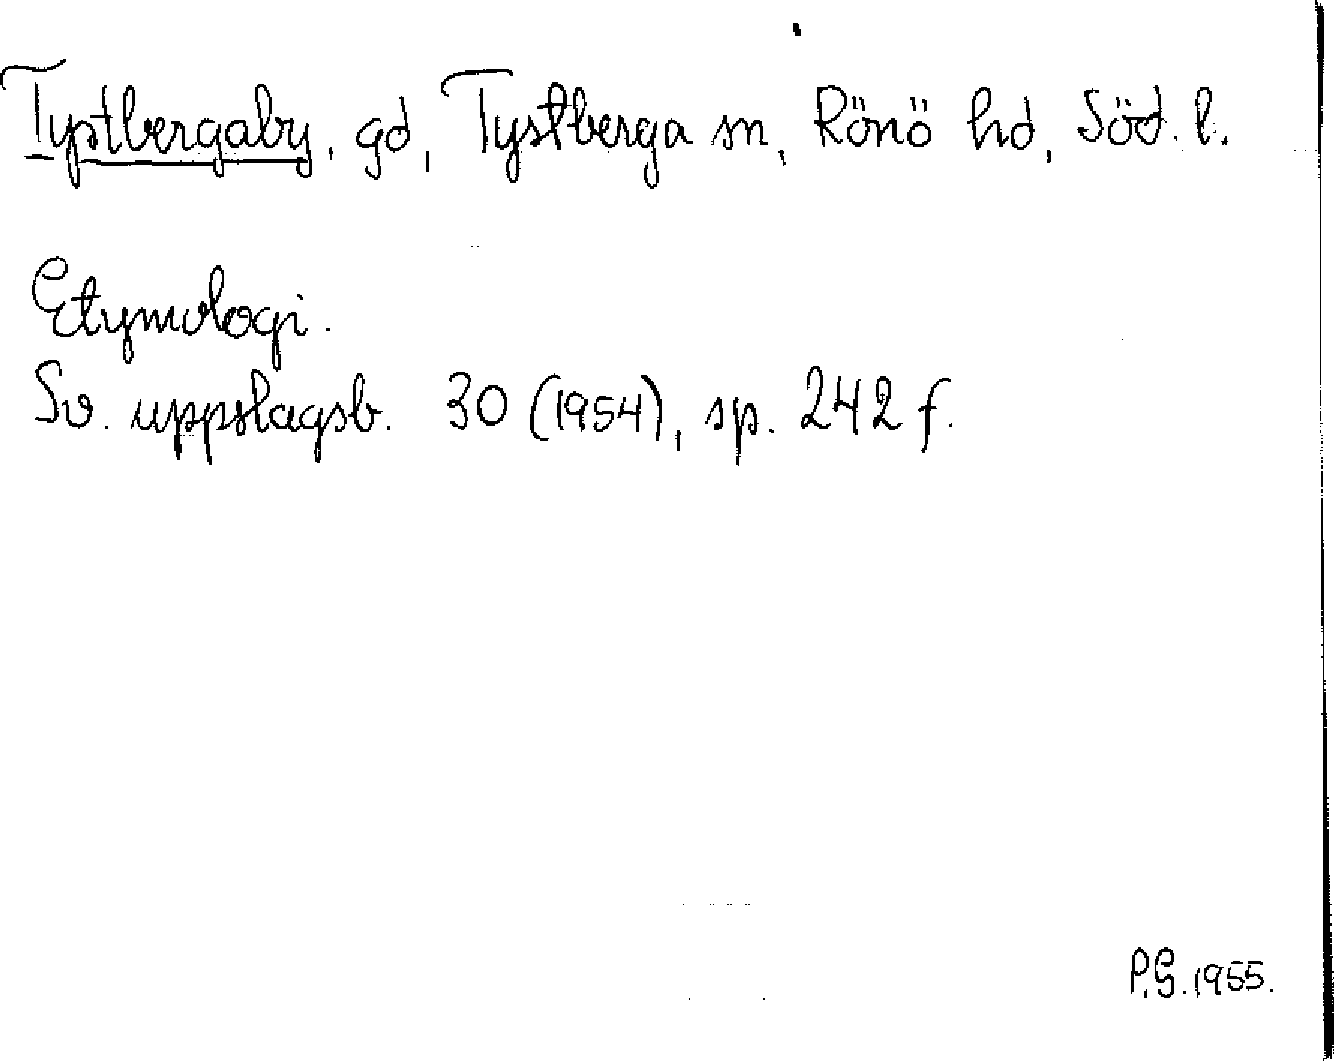 Tystbergaby, gd, Tystberga sn, Rönö hd, Söd. l.
Etymologi.
Sv. uppslagsb. 30 (1954), sp. 242 f.
P.G. 1955.